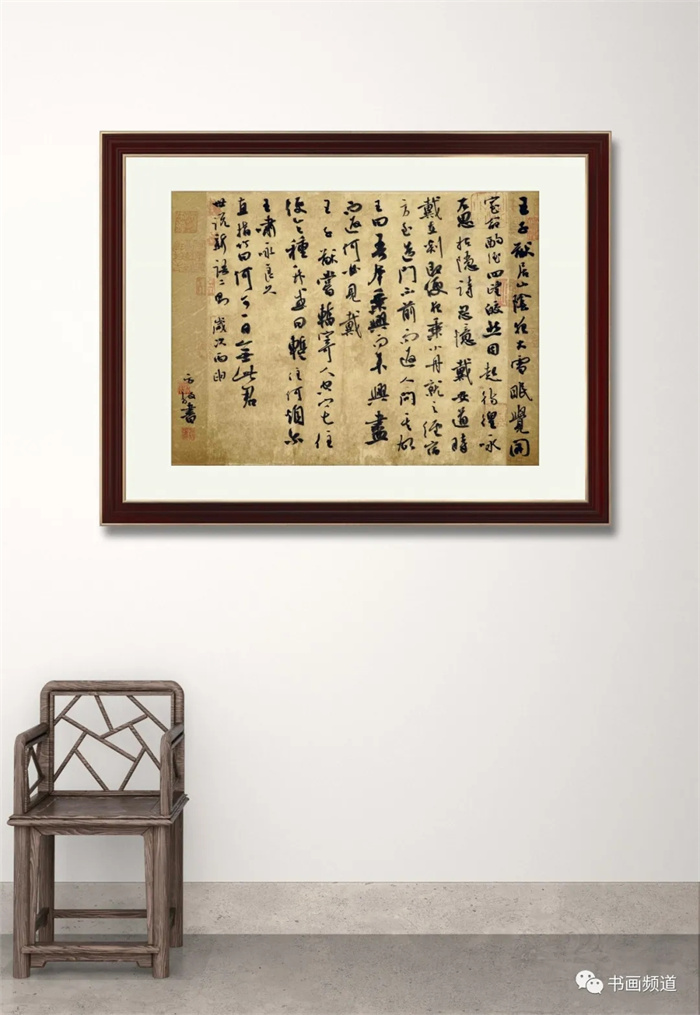 王子猷居山陰夜大雪眠覺開
室命酌酒四望皎然因起彷徨咏
左思招隱詩忽憶戴安道時
戴在剡即便夜乘小舟就之經宿
方至造門不前而返人問其故
王曰吾本乘興而來興盡
而返何必見戴
王子猷嘗暫寄人空宅住
便令種竹曰暫住何煩爾
王嘯咏良久
直指竹曰何可一日無此君
世說新語二則 歲次丙申
書
书画频道